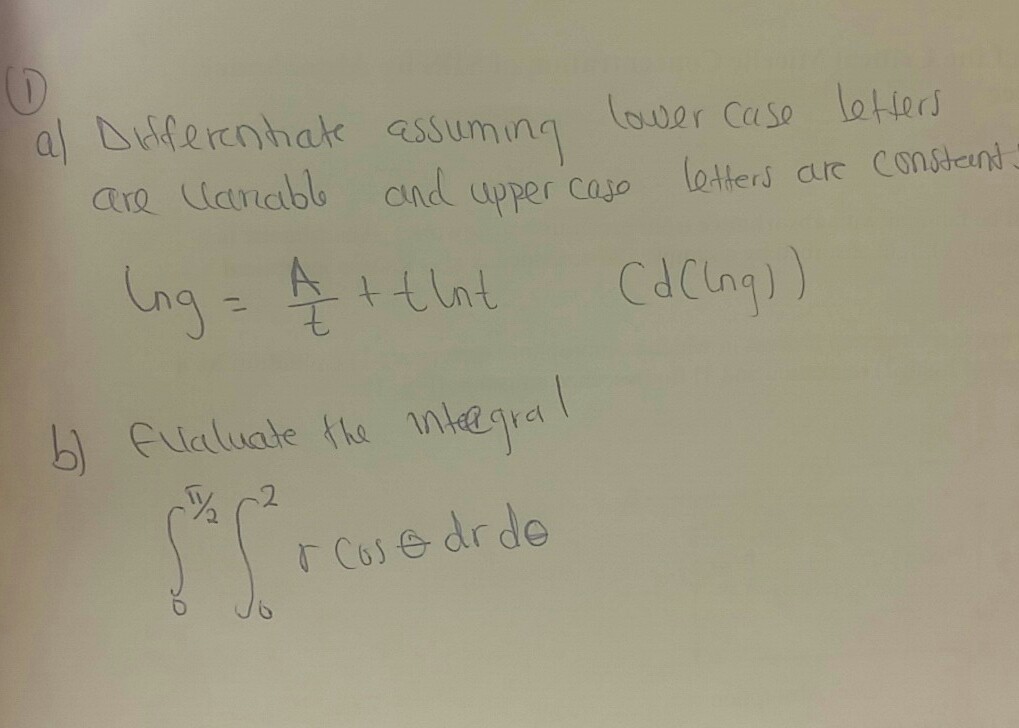 ①
a) Differentiate assuming lower case letters
are Variable and upper case letters are constant.
lng = A/t + t lnt (d(lng))
b) Evaluate the integral
∫₀^π/2 ∫₀² r cos θ dr dθ